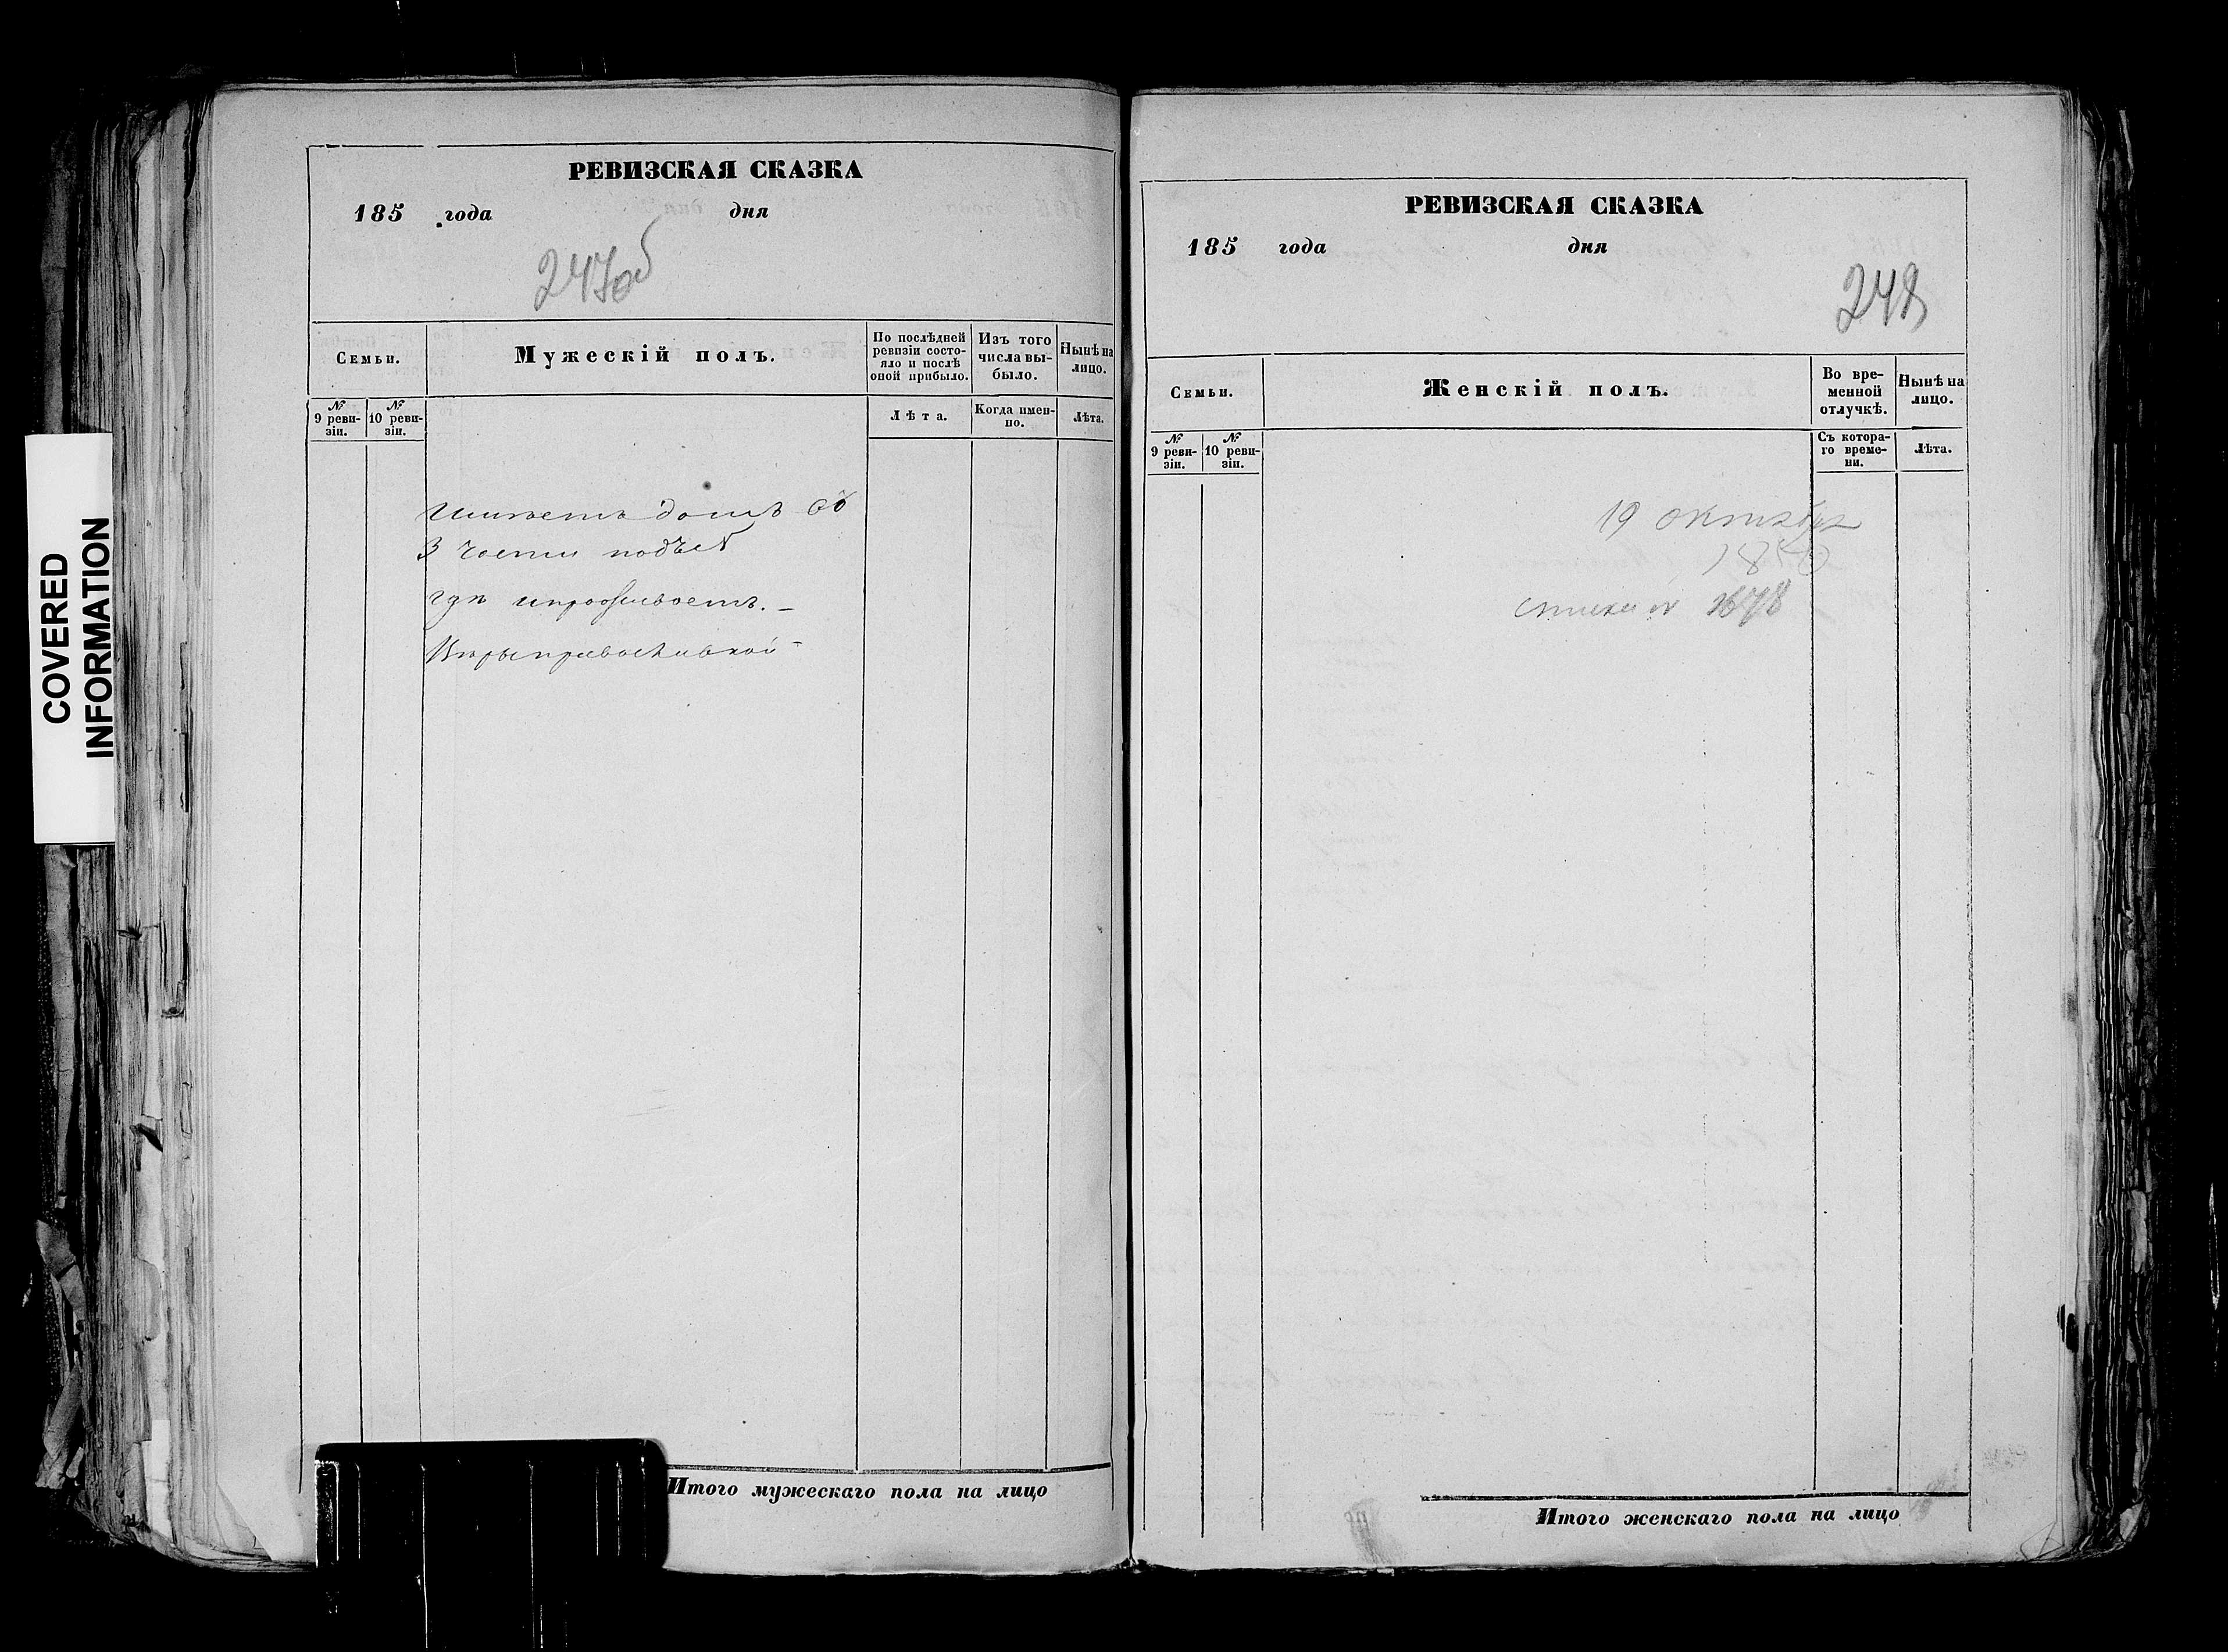 COVERED
INFORMATION
РЕВИЗСКАЯ СКАЗКА
185 года дня
247об
Семьи.
Мужескій полъ.
По послѣдней
ревизіи состо-
яло и послѣ
оной прибыло.
Изъ того
числа вы-
было.
Нынѣ на
лицо.
№
9 реви-
зіи.
№
10 реви-
зіи.
Лѣта.
Когда имен-
но.
Лѣта.
имѣетъ домъ въ
3 части подъ №
гдѣ и проживаетъ. –
Вѣры православной –
Итого мужескаго пола на лицо
РЕВИЗСКАЯ СКАЗКА
185 года дня
248
Семьи.
Женскій полъ.
Во вре-
менной
отлучкѣ.
Нынѣ на
лицо.
№
9 реви-
зіи.
№
10 реви-
зіи.
Съ котора-
го време-
ни.
Лѣта.
19 октября
185
№ 1678
Итого женскаго пола на лицо